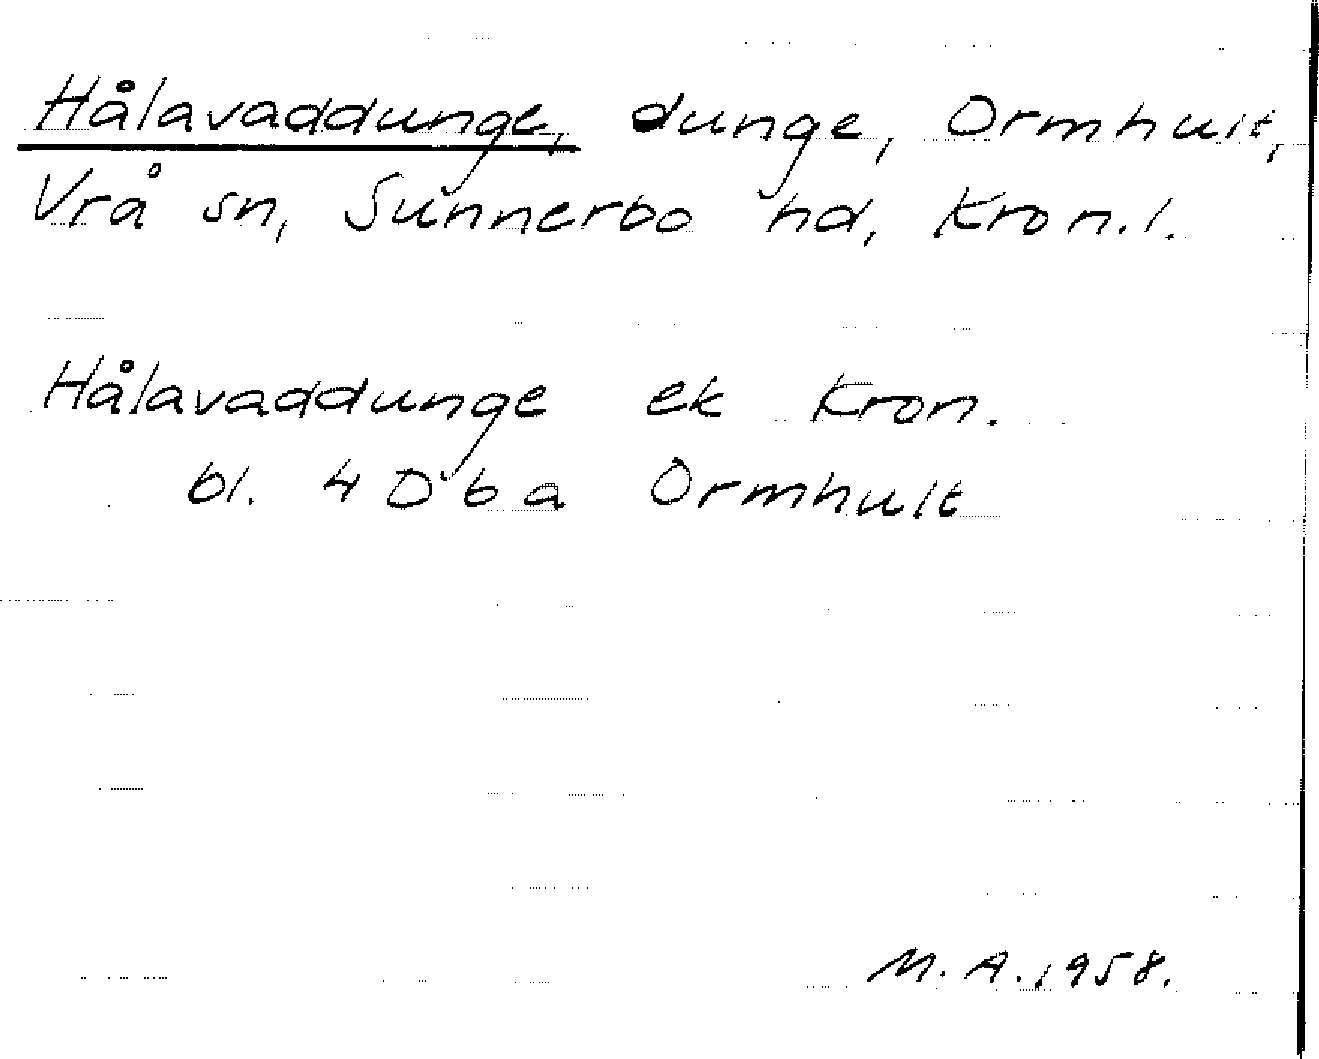 Hålavaddunge, dunge, Ormhult,
Vrå sn, Sunnerbo hd, Kron.l.
Hålavaddunge ek Kron.
bl. 4 D 6 a Ormhult
M.A. 1958.